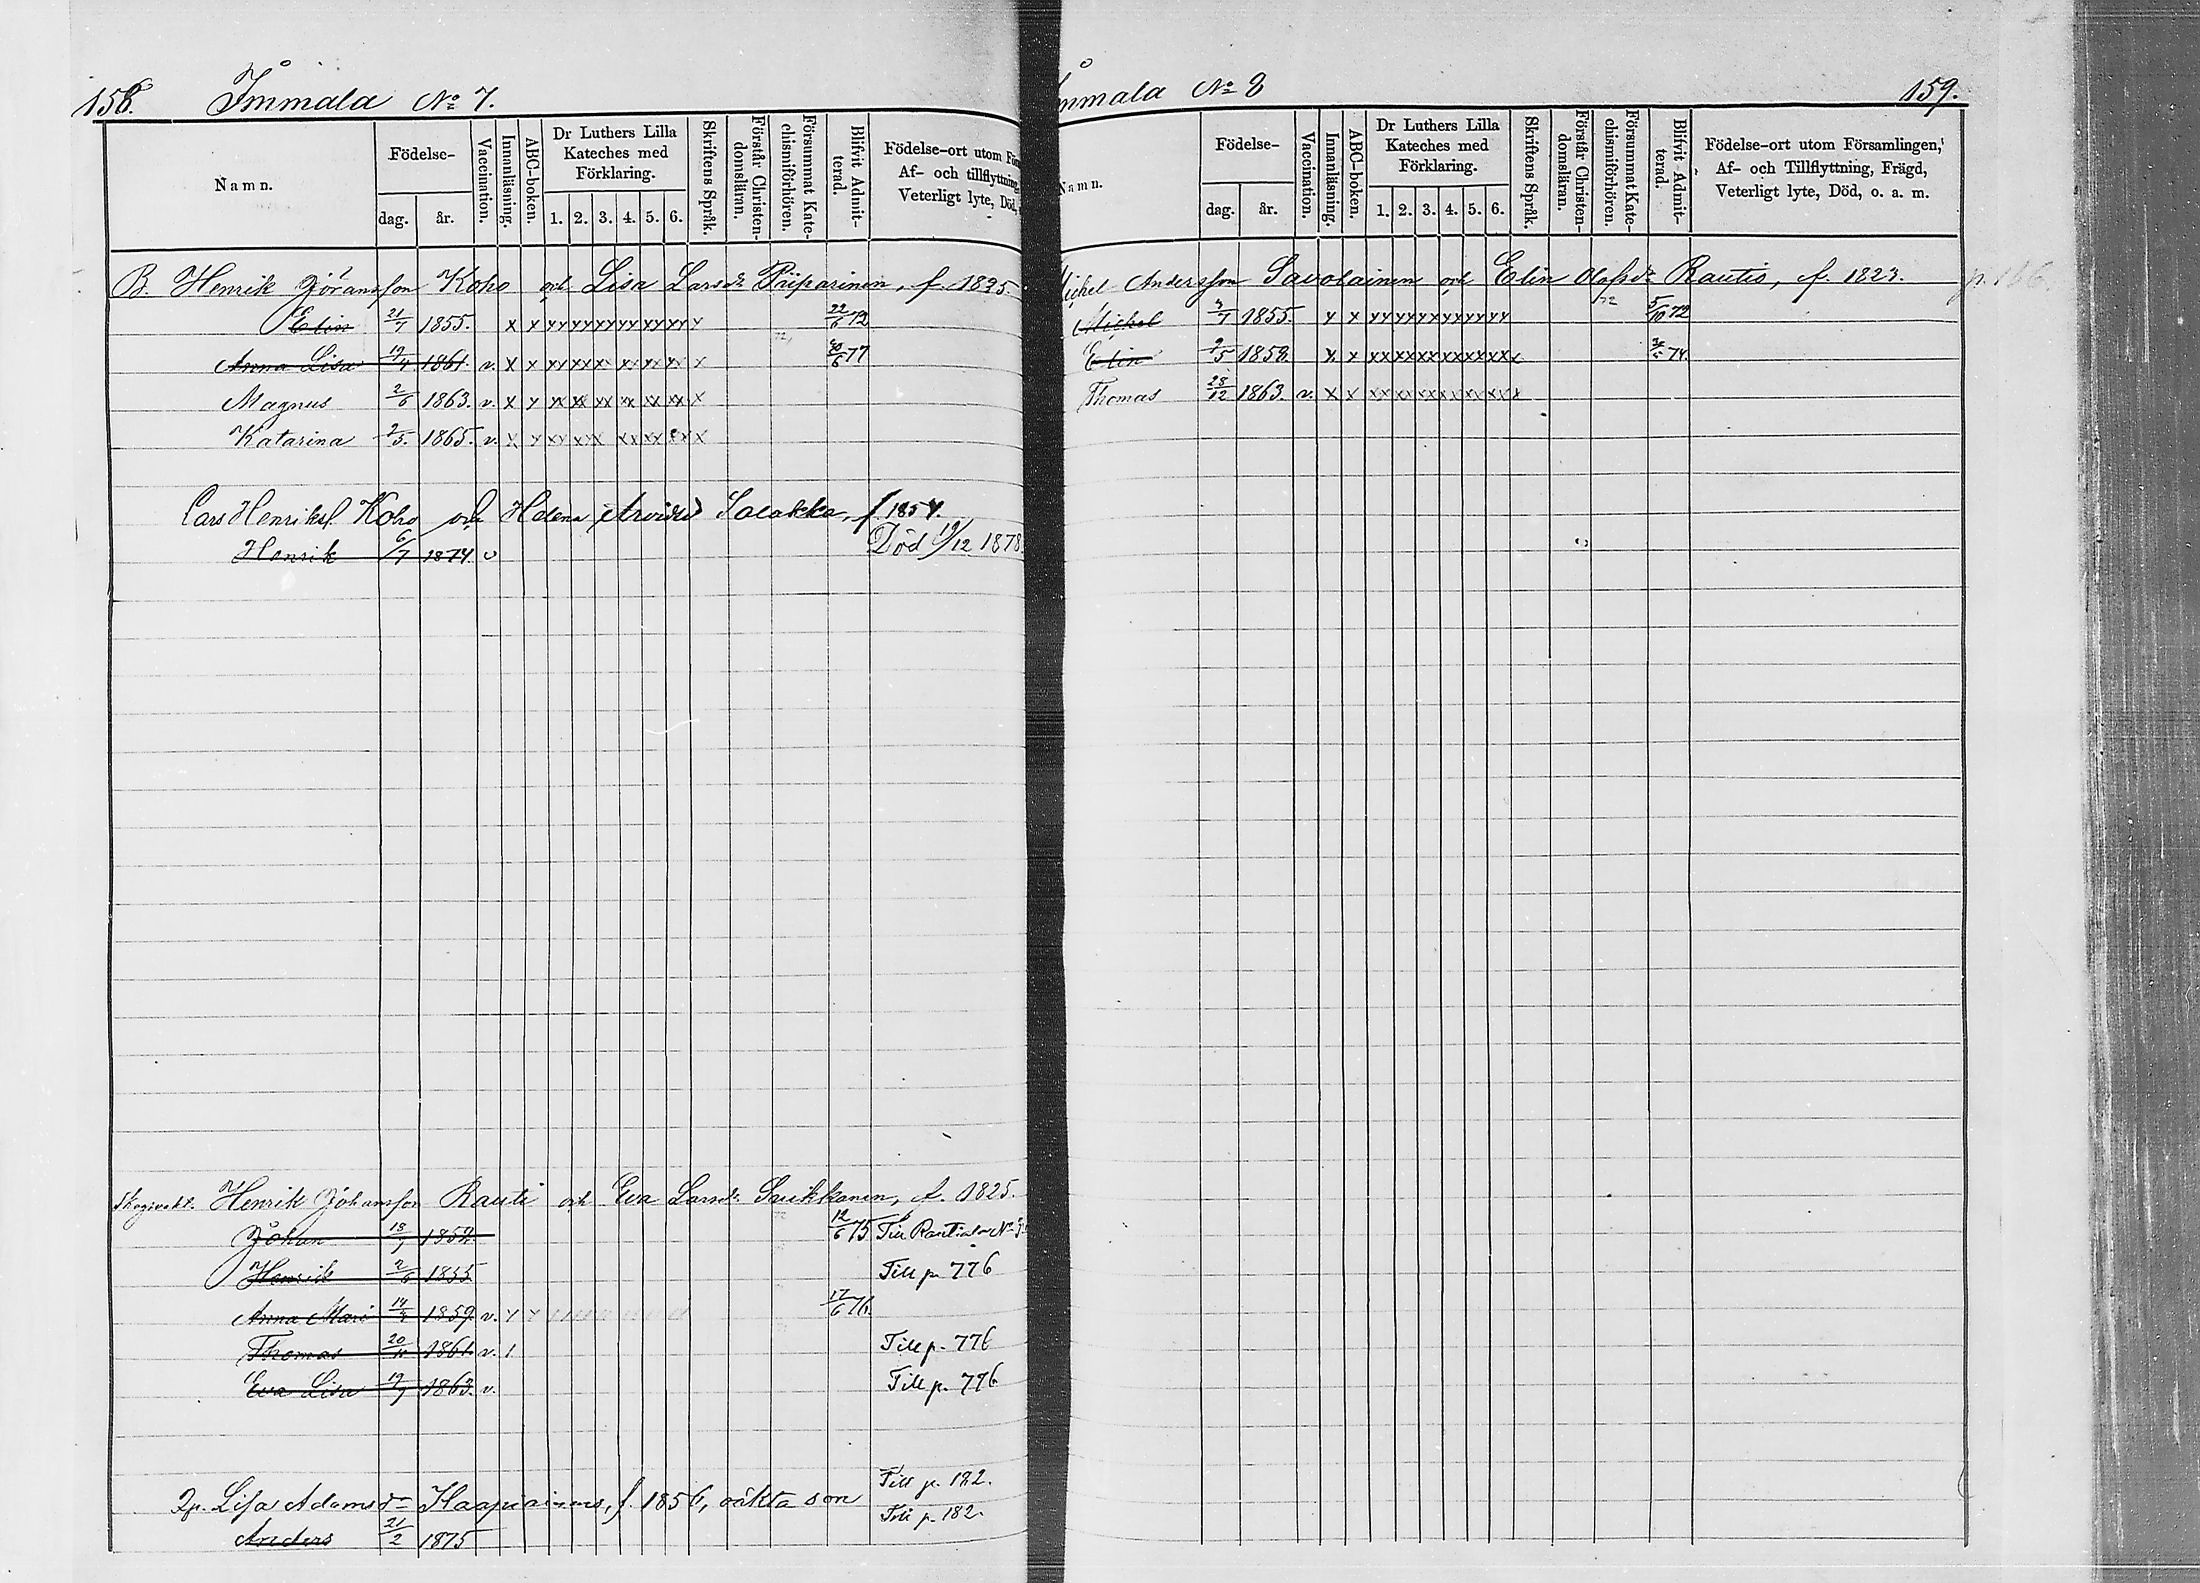 158. Immala No 7.
Namn. Födelse- dag. år. Vaccination. Innanläsning. ABC-boken. Dr Luthers Lilla Kateches med Förklaring. 1. 2. 3. 4. 5. 6. Skriftens Språk. Förstår Christendomsläran. Försummat Katechismiförhören. Blifvit Admitterad. Födelse-ort utom För Af- och tillflyttning, Veterligt lyte, Död,
B. Henrik Göransson Koho och Lisa Larsdr Piiparinen, f. 1825.
Elin 21/7 1855. x x xx xx xx xx xx xx x 22/6 72
Anna Lisa 1861. v. x x xx xx xx xx xx xx x 30/6 77
Magnus 2/6 1863. v. x x xx xx xx xx xx xx x
Katarina 2/5. 1865. v. x x xx xx xx xx xx x
Lars Henriksf. Koho och Helena Arvidsd Salakka, f. 1854.
Henrik 6/7 1874. v Död 19/12 1878.
Skogsvakt. Henrik Johansson Rauti och Eva Larsdr Suikkanen, f. 1825.
Johan 18/7 1852. 12/6 75 Till Rautiala No
Henrik 2/6 1855 Till p. 776
Anna Mari 14/3 1859. v. 17/6 76.
Thomas 20/10 1861. v. 1 Till p. 776
Eva Lisa 19/9 1863. v. Till p. 776
Till p. 182.
Qp. Lisa Adamsdr Haapiainen, f. 1856, oäkta son
Till p. 182.
Anders 21/2 1875
mmala No 8 159.
Namn. Födelse- dag. år. Vaccination. Innanläsning. ABC-boken. Dr Luthers Lilla Kateches med Förklaring. 1. 2. 3. 4. 5. 6. Skriftens Språk. Förstår Christendomsläran. Försummat Katechismiförhören. Blifvit Admitterad. Födelse-ort utom Församlingen, Af- och Tillflyttning, Frägd, Veterligt lyte, Död, o. a. m.
Michel Andersson Savolainen och Elin Olofsdr Rautio, f. 1823. p. 186.
Michel 1855. x x xx xx xx xx xx xx 72 5/10 72
Elin 9/5 1858 x x xx xx xx xx xx xx x 74.
Thomas 28/12 1863. v. x x xx xx xx xx xx xx x